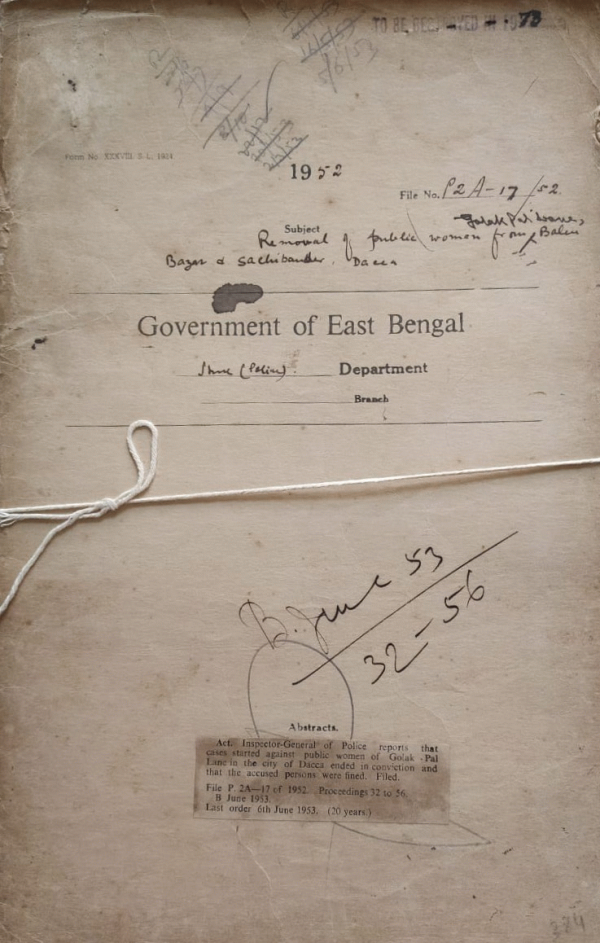 TO BE DESTROYED IN 1973
5/6/53
Form No. XXXVIII S L, 1924
1952
File No. P2A-17/52
Subject
Golak Pal Lane,
Removal of public women from Babu
Bazar & Sachibander, Dacca
Government of East Bengal
Home (Police) Department
Branch
B. June 53
32-56
Abstracts.
Act. Inspector-General of Police reports that
cases started against public women of Golak Pal
Lane in the city of Dacca ended in conviction and
that the accused persons were fined. Filed.
File P. 2A—17 of 1952. Proceedings 32 to 56.
B June 1953.
Last order 6th June 1953. (20 years.)
384